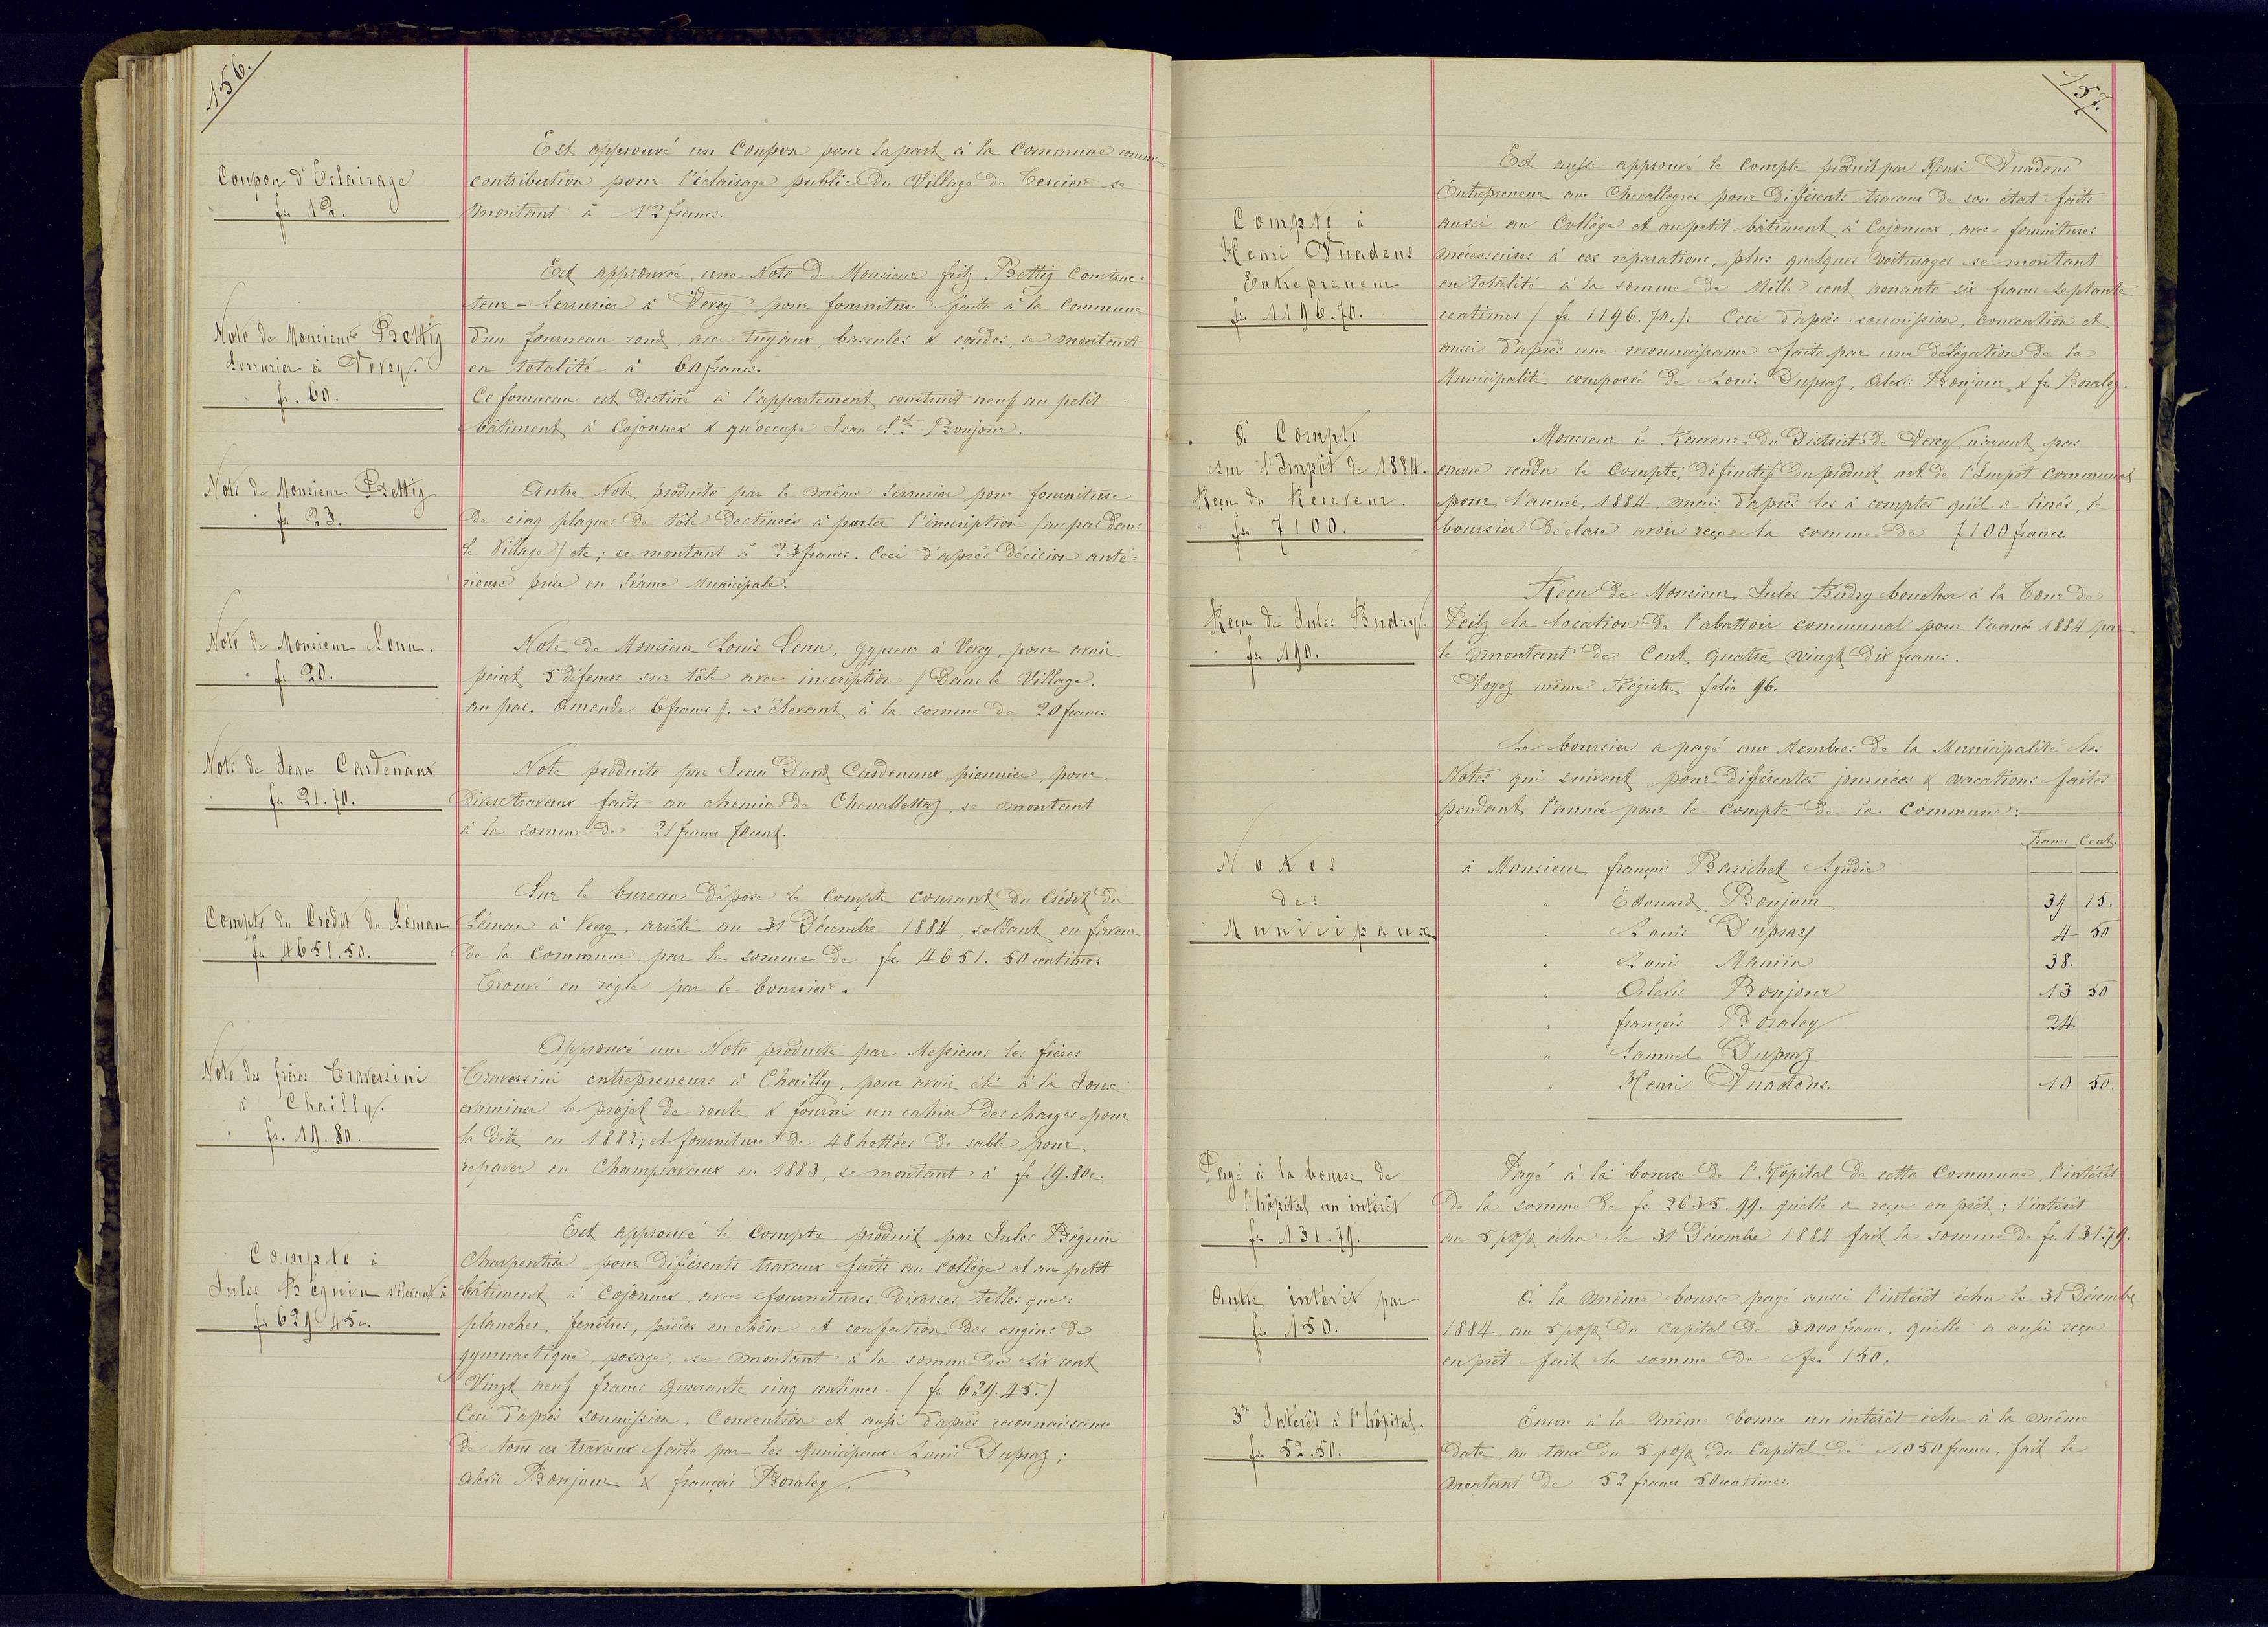 156.
Coupon d'Eclairage
fr 12.
Est approuvé un Coupon pour la part à la Commune comme
contribution pour l'éclairage public du Village de Cerciers se
montant à 12 francs.
Note de Monsieur Rettig
Serrurier à Vevey.
fr. 60.
Est approuvée une Note de Monsieur fritz Rettig Construc-
teur-Serrurier à Vevey pour fourniture faite à la Commune
d'un fourneau rond, avec tuyaux, bascules & coudes, se montant
en totalité à 60 francs.
Ce fourneau est destiné à l'appartement construit neuf au petit
bâtiment à Cojonnex & qu'occupe Jean Sl. Bonjour.
Note de Monsieur Rettig
fr 23.
Autre Note produite par le même serrurier pour fourniture
de cinq plaques de tôle destinées à porter l'inscription (au pas dans
le Village) etc; se montant à 23 francs. Ceci d'après décision anté-
rieure prise en Séance Municipale.
Note de Monsieur Senn.
fr 20.
Note de Monsieur Louis Senn, Gypseur à Vevey, pour avoir
peint 5 défenses sur tôle avec inscription (Dans le Village.
au pas. Amende 6 francs). s'élevant à la somme de 20 francs.
Note de Jean Cardenaux
fr 21.70.
Note produite par Jean David Cardenaux pionnier, pour
divers travaux faits au chemin de Chevallettaz, se montant
à la somme de 21 francs 70 cent.
Compte du Crédit du Léman
fr 4651.50.
Sur le bureau dépose le Compte courant du Crédit du
Léman à Vevey, arrêté au 31 Décembre 1884, soldant en faveur
de la Commune par la somme de fr. 4651. 50 centimes
Trouvé en règle par le boursier.
Note des frères Traversini
à Chailly.
fr. 19.80.
Approuvé une Note produite par Messieurs les frères
Traversini entrepreneurs à Chailly, pour avoir été à la Joux
examiner le projet de route & fourni un cahier des charges pour
la dite en 1882; et fourniture de 48 hottées de sable pour
repaver en Champsaveaux en 1883, se montant à fr 19.80c.
Compte à
Jules Béguin s'élevant à
fr 629.45c.
Est approuvé le Compte produit par Jules Béguin
Charpentier pour différents travaux faits au Collège et au petit
bâtiment à Cojonnex avec fournitures diverses telles que:
planches, fenêtres, pièces en chêne et confection des engins de
gymnastique, posage, se montant à la somme de six cent
Vingt neuf francs quarante cinq centimes. (fr 629.45.)
Ceci d'après soumission, Convention et aussi d'après reconnaissance
de tous ces travaux faite par les Municipaux Louis Dupraz;
Alexis Bonjour & françois Boraley.
157.
Compte à
Henri Vuadens
Entrepreneur
fr 1196.70.
Est aussi approuvé le compte produit par Henri Vuadens
Entrepreneur aux Chevalleyres pour différents travaux de son état faits
aussi au Collège et au petit bâtiment à Cojonnex, avec fournitures
nécessaires à ces réparations, plus quelques voiturages se montant
en totalité à la somme de Mille cent nonante six francs septante
centimes (fr 1196.70.). Ceci d'après soumission, convention et
aussi d'après une reconnaissance faite par une délégation de la
Municipalité composée de Louis Dupraz, Alexis Bonjour, & fr. Boraley.
à Compte
sur l'Impôt de 1884.
Reçu du Receveur.
fr 7100.
Monsieur le Receveur du District de Vevey n'ayant pas
encore rendu le Compte définitif du produit net de l'Impôt Communal
pour l'année 1884, mais d'après les à comptes qu'il a livrés, le
boursier déclare avoir reçu la somme de 7100 francs
Reçu de Jules Budry.
fr 190.
Reçu de Monsieur Jules Budry boucher à la Tour de
Peilz la location de l'abattoir communal pour l'année 1884 par
le montant de Cent quatre vingt dix francs.
Voyez même Régistre folio 96.
Le boursier a payé aux Membres de la Municipalité les
Notes qui suivent pour différentes journées & vacations faites
pendant l'année pour le compte de la Commune:
Notes
des
Municipaux
Francs Cent.
à Monsieur françois Barichet Syndic — —
" Edouard Bonjour 39 15.
" Louis Dupraz 4 50
" Louis Mamin 38.
" Alexis Bonjour 13 50
" françois Boraley 24.
" Samuel Dupraz — —
" Henri Vuadens. 10 50.
Payé à la bourse de
l'hôpital un intérêt
fr 131.79.
Payé à la bourse de l'Hôpital de cette Commune, l'intérêt
de la somme de fr. 2635.99. qu'elle a reçu en prêt; l'intérêt
au 5 p% échu le 31 Décembre 1884 fait la somme de fr. 131.79.
Autre intérêt par
fr 150.
à la même bourse payé aussi l'intérêt échu le 31 Décembre
1884 au 5 p% du capital de 3000 francs, qu'elle a aussi reçu
en prêt fait la somme de fr. 150.
3me Intérêt à l'hôpital.
fr 52.50.
Encore à la même bourse un intérêt échu à la même
date, au taux du 5 p% du Capital de 1050 francs, fait le
montant de 52 francs 50 centimes.